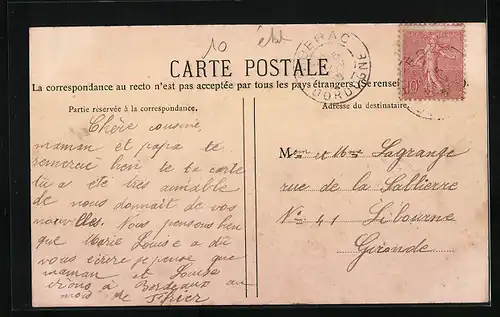 10
BERGERAC
DORDOGNE
CARTE POSTALE
La correspondance au recto n'est pas acceptée par tous les pays étrangers (Se renseigner
Partie réservée à la correspondance.
Adresse du destinataire.
Chère cousine,
maman et papa te
remercie bien de ta carte
tu a été très aimable
de nous donnait de vos
nouvelles. Nous pensons bien
que Marie Louise a dû
vous écrire je pense que
maman et Louise
irons à Bordeaux au
mois de
Mr et Mme Lagrange
rue de la Sablierre
No 41 Libourne
Gironde